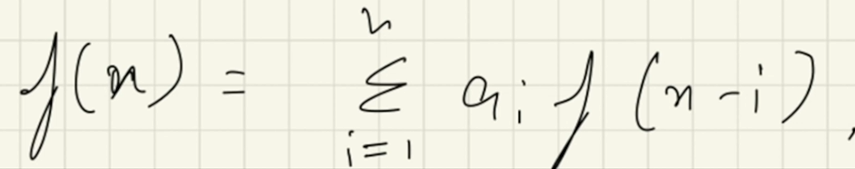 f(n) = \sum_{i=1}^{r} a_i f(n-i),